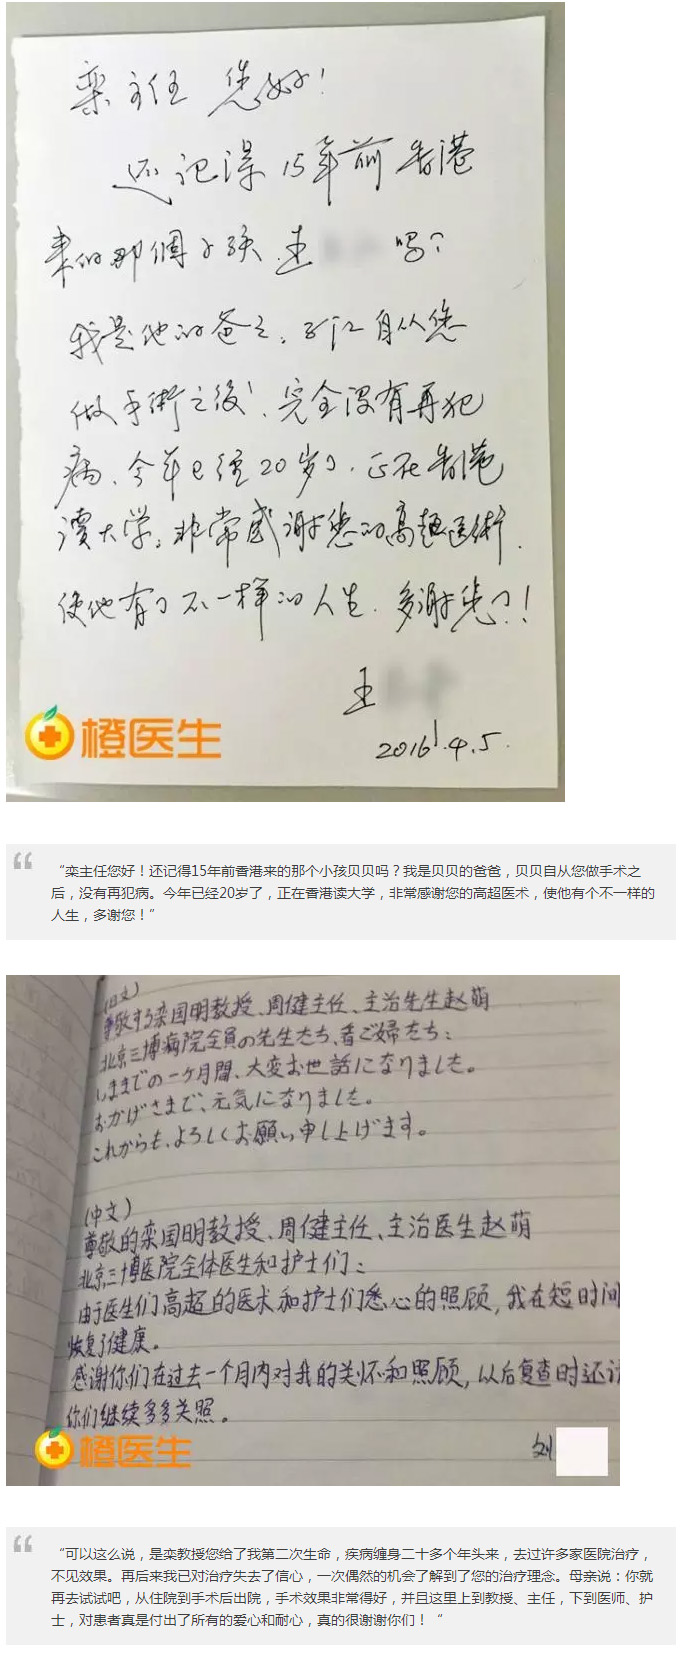 栾主任 您好！
还记得15年前香港
来的那個小孩 王 吗？
我是他的爸爸。 自从您
做手術之後，完全没有再犯
病、今年已经20岁了，正在香港
读大学。非常感谢您的高超医術，
使他有了不一样的人生，多谢您了！！
王
2016.4.5.
橙医生
“栾主任您好！还记得15年前香港来的那个小孩贝贝吗？我是贝贝的爸爸，贝贝自从您做手术之
后，没有再犯病。今年已经20岁了，正在香港读大学，非常感谢您的高超医术，使他有个不一样的
人生，多谢您！”
(日文)
尊敬する栾国明教授、周健主任、主治先生赵萌
北京三博病院全員の先生たち、看ご婦たち：
いままでの一ヶ月間、大変お世話になりました。
おかげさまで、元気になりました。
これからも、よろしくお願い申し上げます。
(中文)
尊敬的栾国明教授、周健主任、主治医生赵萌
北京三博医院全体医生和护士们：
由于医生们高超的医术和护士们悉心的照顾，我在短时间
恢复了健康。
感谢你们在过去一个月内对我的关怀和照顾，以后复查时还
你们继续多多关照。
刘
橙医生
“可以这么说，是栾教授您给了我第二次生命，疾病缠身二十多个年头来，去过许多家医院治疗，
不见效果。再后来我已对治疗失去了信心，一次偶然的机会了解到了您的治疗理念。母亲说：你就
再去试试吧，从住院到手术后出院，手术效果非常得好，并且这里上到教授、主任，下到医师、护
士，对患者真是付出了所有的爱心和耐心，真的很谢谢你们！“